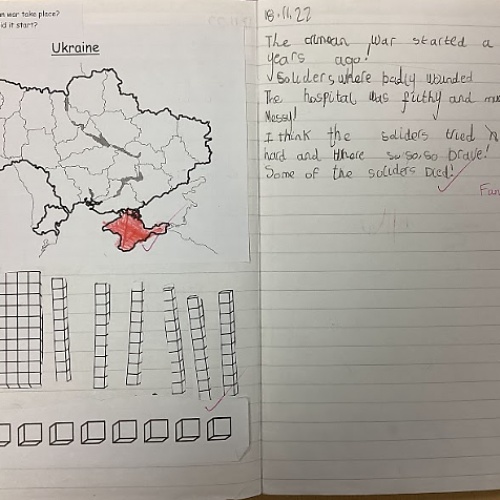 an war take place?
id it start?
Ukraine
18.11.22
The crimean war started a
years ago!
Soliders where badly wounded
The hospital was filthy and
Messy!
I think the soliders tried
hard and where so so, so brave!
Some of the soliders Died!
Fan